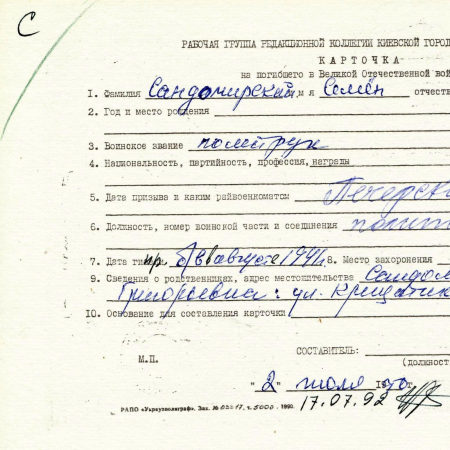 С
РАБОЧАЯ ГРУППА РЕДАКЦИОННОЙ КОЛЛЕГИИ КИЕВСКОЙ ГОРО
КАРТОЧКА
на погибшего в Великой Отечественной вой
1. Фамилия Сандомирский имя Семён отчест
2. Год и место рождения
3. Воинское звание политрук
4. Национальность, партийность, профессия, награды
5. Дата призыва и каким райвоенкоматом Печерски
6. Должность, номер воинской части и соединения полит
7. Дата гибели пр. б/в в августе 1941г. 8. Место захоронения
9. Сведения о родственниках, адрес местожительства Сандом
Григорьевна: ул. Крещатик
10. Основание для составления карточки
СОСТАВИТЕЛЬ:
М.П.
(должност
"2" июля 1990г.
17.07.92
РАПО «Укрвузполиграф». Зак. № т. 5000. 1990.